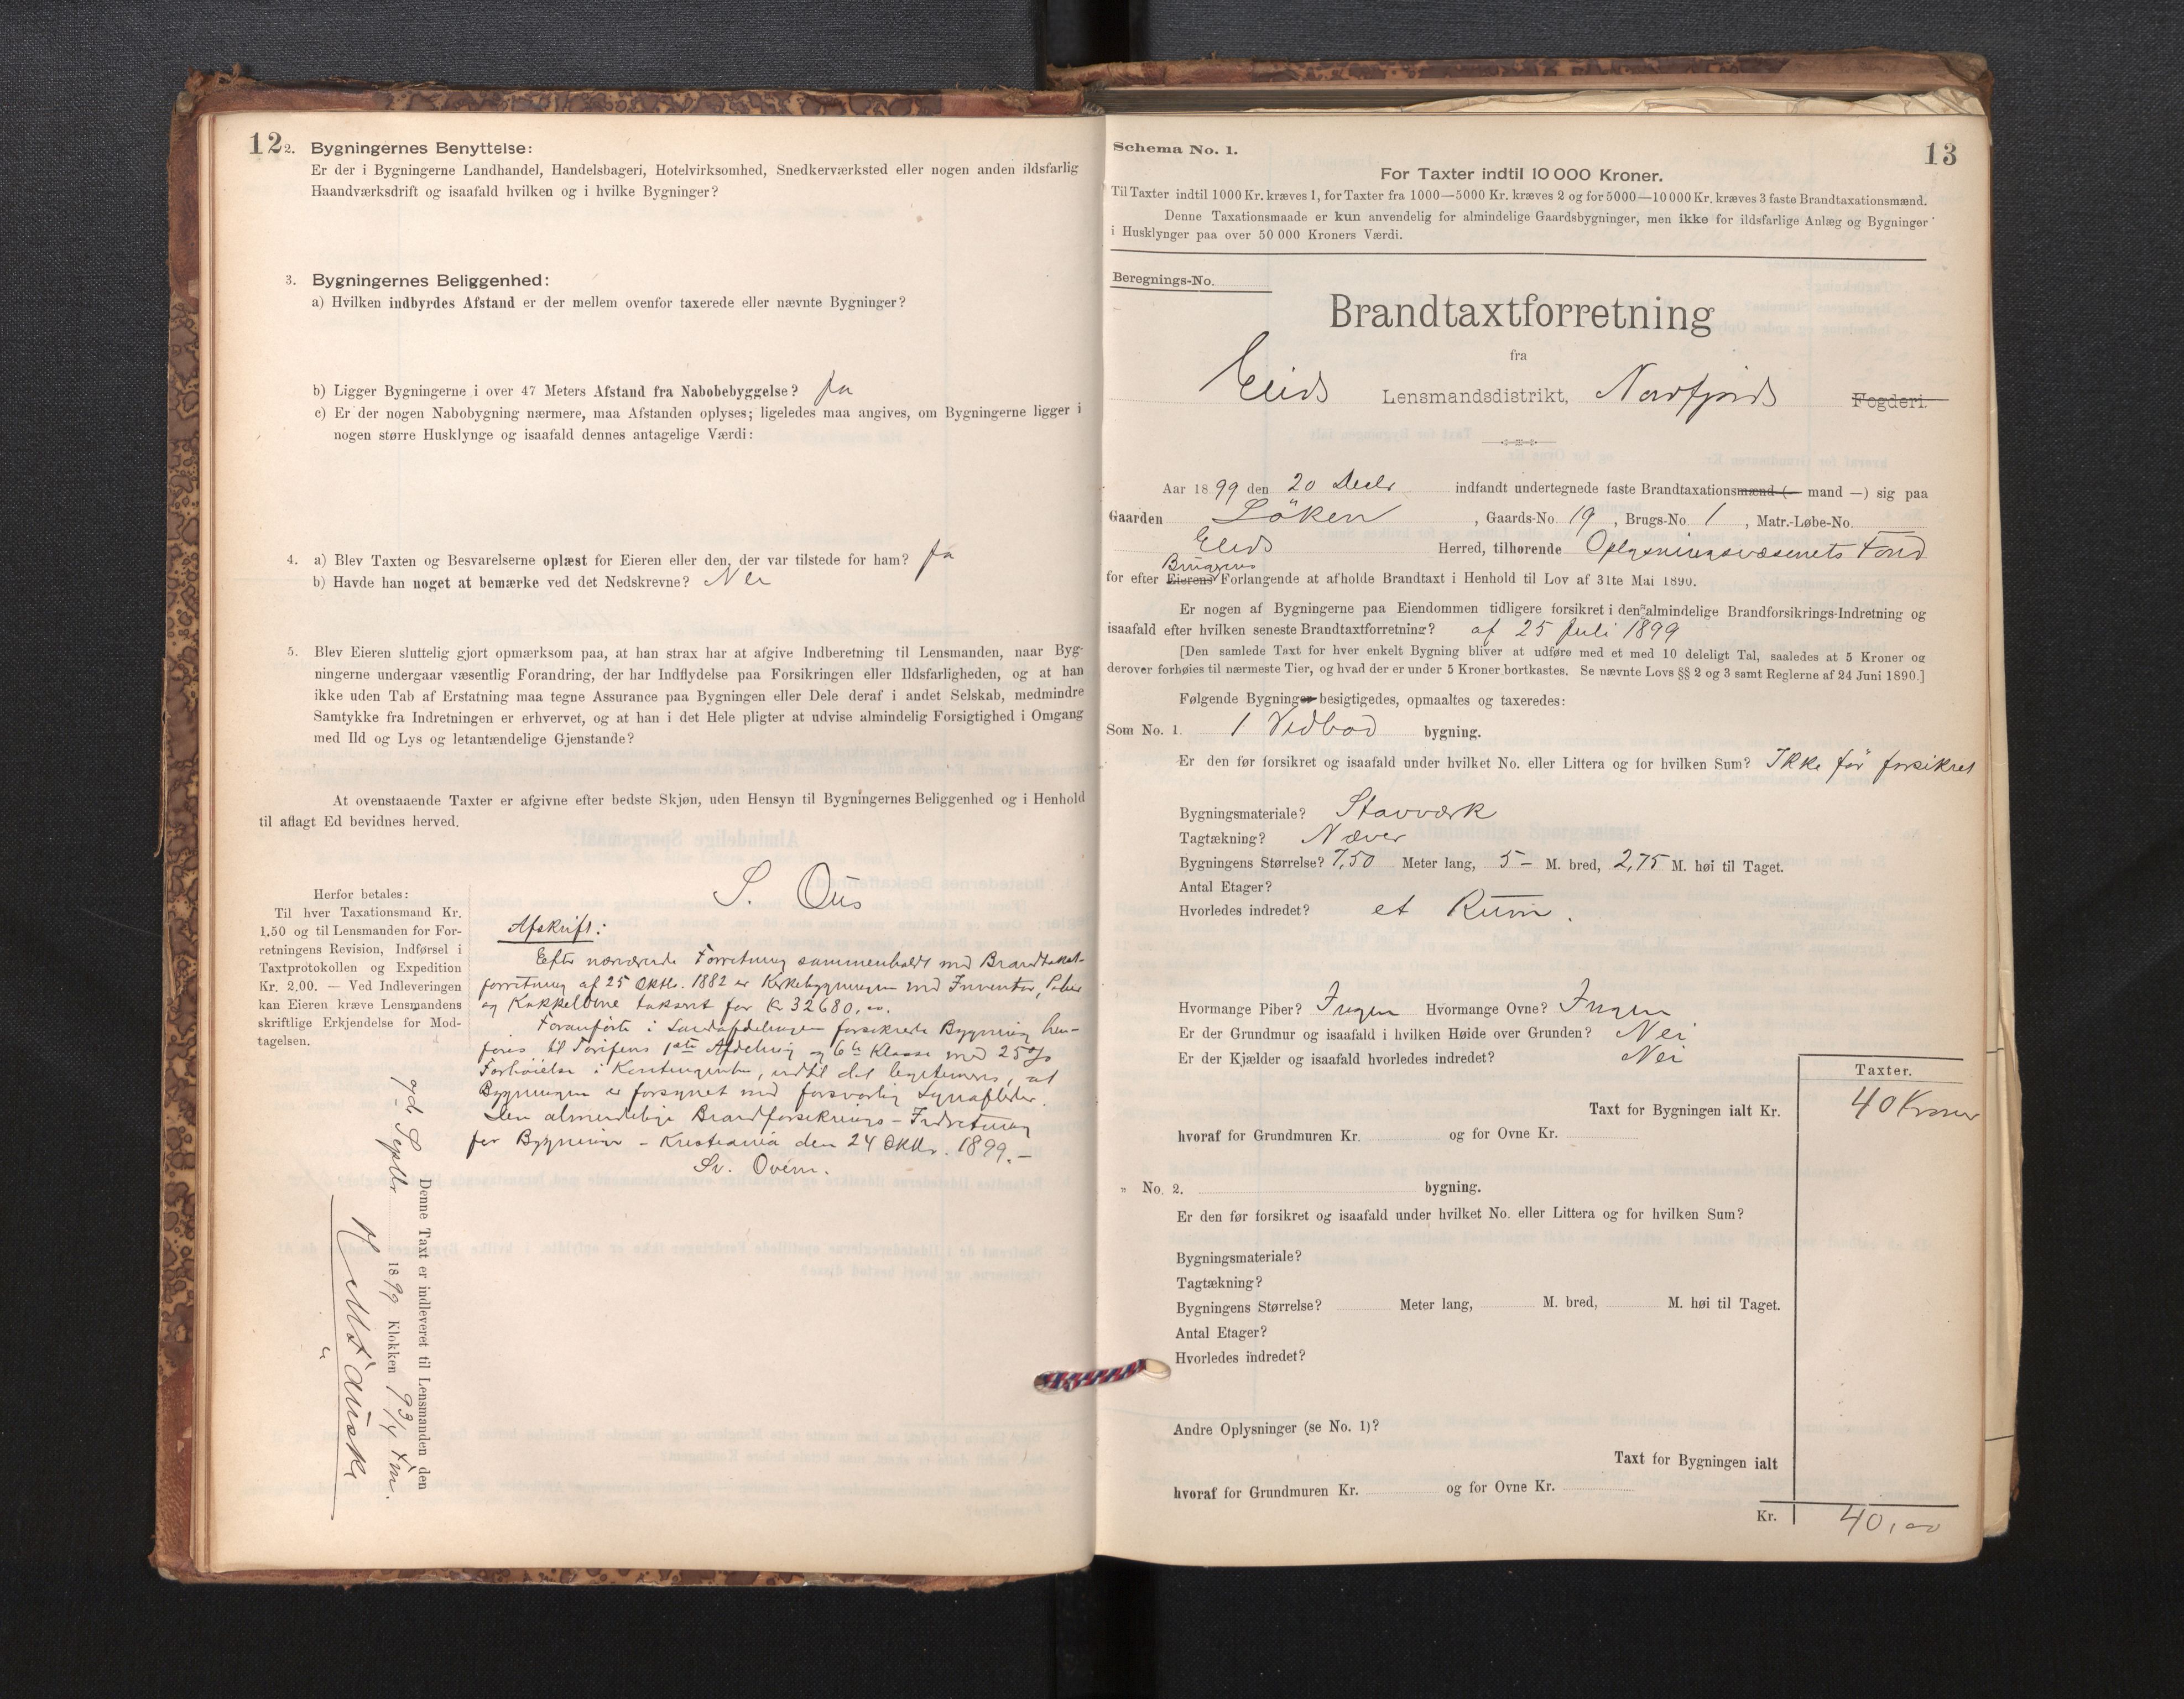 12
2. Bygningernes Benyttelse:
Er der i Bygningerne Landhandel, Handelsbageri, Hotelvirksomhed, Snedkerværksted eller nogen anden ildsfarlig
Haandværksdrift og isaafald hvilken og i hvilke Bygninger?
3. Bygningernes Beliggenhed:
a) Hvilken indbyrdes Afstand er der mellem ovenfor taxerede eller nævnte Bygninger?
b) Ligger Bygningerne i over 47 Meters Afstand fra Nabobebyggelse? Ja
c) Er der nogen Nabobygning nærmere, maa Afstanden oplyses; ligeledes maa angives, om Bygningerne ligger i
nogen større Husklynge og isaafald dennes antagelige Værdi:
4. a) Blev Taxten og Besvarelserne oplæst for Eieren eller den, der var tilstede for ham? Ja
b) Havde han noget at bemærke ved det Nedskrevne? Nei
5. Blev Eieren sluttelig gjort opmærksom paa, at han strax har at afgive Indberetning til Lensmanden, naar Byg-
ningerne undergaar væsentlig Forandring, der har Indflydelse paa Forsikringen eller Ildsfarligheden, og at han
ikke uden Tab af Erstatning maa tegne Assurance paa Bygningen eller Dele deraf i andet Selskab, medmindre
Samtykke fra Indretningen er erhvervet, og at han i det Hele pligter at udvise almindelig Forsigtighed i Omgang
med Ild og Lys og letantændelige Gjenstande?
At ovenstaaende Taxter er afgivne efter bedste Skjøn, uden Hensyn til Bygningernes Beliggenhed og i Henhold
til aflagt Ed bevidnes herved.
S. Ous
Herfor betales:
Til hver Taxationsmand Kr.
1,50 og til Lensmanden for For-
retningens Revision, Indførsel i
Taxtprotokollen og Expedition
Kr. 2.00. — Ved Indleveringen
kan Eieren kræve Lensmandens
skriftlige Erkjendelse for Mod-
tagelsen.
Afskrift:
Efter nærværende Forretning sammenholdt med Brandtakst-
forretning af 25 Oktb. 1882 er Kirkebygningen med Inventar,
og Kakkelovne takseret for Kr 32680,00.
Foranførte i Landafdelingen forsikrede Bygning hen-
føres til Tarifens 1ste Afdeling og 6te Klasse med 25%
Forhøielse i Kontingenten, indtil det legitimeres, at
Bygningen er forsynet med forsvarlig Lynafleder.
Den almindelige Brandforsikrings-Indretning
for Bygninger – Kristiania den 24 Oktbr. 1899.–
Denne Taxt er indleveret til Lensmanden den
Septbr 1899 Klokken 9 3/4 Fm.
13
Schema No. 1.
For Taxter indtil 10 000 Kroner.
Til Taxter indtil 1000 Kr. kræves 1, for Taxter fra 1000—5000 Kr. kræves 2 og for 5000—10 000 Kr. kræves 3 faste Brandtaxationsmænd.
Denne Taxationsmaade er kun anvendelig for almindelige Gaardsbygninger, men ikke for ildsfarlige Anlæg og Bygninger
i Husklynger paa over 50 000 Kroners Værdi.
Beregnings-No.
Brandtaxtforretning
fra
Eids Lensmandsdistrikt, Nordfjords Fogderi.
Aar 1899 den 20 Decbr indfandt undertegnede faste Brandtaxationsmænd (— mand —) sig paa
Gaarden Löken, Gaards-No. 19, Brugs-No. 1, Matr.-Løbe-No.
Eids Herred, tilhørende Oplysningsvæsenets Fond
Brugerens
for efter Eierens Forlangende at afholde Brandtaxt i Henhold til Lov af 31te Mai 1890.
Er nogen af Bygningerne paa Eiendommen tidligere forsikret i den almindelige Brandforsikrings-Indretning og
isaafald efter hvilken seneste Brandtaxtforretning? af 25 Juli 1899
[Den samlede Taxt for hver enkelt Bygning bliver at udføre med et med 10 deleligt Tal, saaledes at 5 Kroner og
derover forhøies til nærmeste Tier, og hvad der er under 5 Kroner bortkastes. Se nævnte Lovs §§ 2 og 3 samt Reglerne af 24 Juni 1890.]
Følgende Bygninger besigtigedes, opmaaltes og taxeredes:
Som No. 1. 1 Vedbod bygning.
Er den før forsikret og isaafald under hvilket No. eller Littera og for hvilken Sum? Ikke för forsikret
Bygningsmateriale? Stavværk
Tagtækning? Næver
Bygningens Størrelse? 7,50 Meter lang, 5– M. bred, 2,75 M. høi til Taget.
Antal Etager?
Hvorledes indredet? et Rum.
Hvormange Piber? Ingen Hvormange Ovne? Ingen
Er der Grundmur og isaafald i hvilken Høide over Grunden? Nei
Er der Kjælder og isaafald hvorledes indredet? Nei
Taxter.
Taxt for Bygningen ialt Kr. 40 Kroner
hvoraf for Grundmuren Kr. og for Ovne Kr.
„ No. 2. bygning.
Er den før forsikret og isaafald under hvilket No. eller Littera og for hvilken Sum?
Bygningsmateriale?
Tagtækning?
Bygningens Størrelse? Meter lang, M. bred, M. høi til Taget.
Antal Etager?
Hvorledes indredet?
Andre Oplysninger (se No. 1)?
Taxt for Bygningen ialt
hvoraf for Grundmuren Kr. og for Ovne Kr.
Kr. 40,00